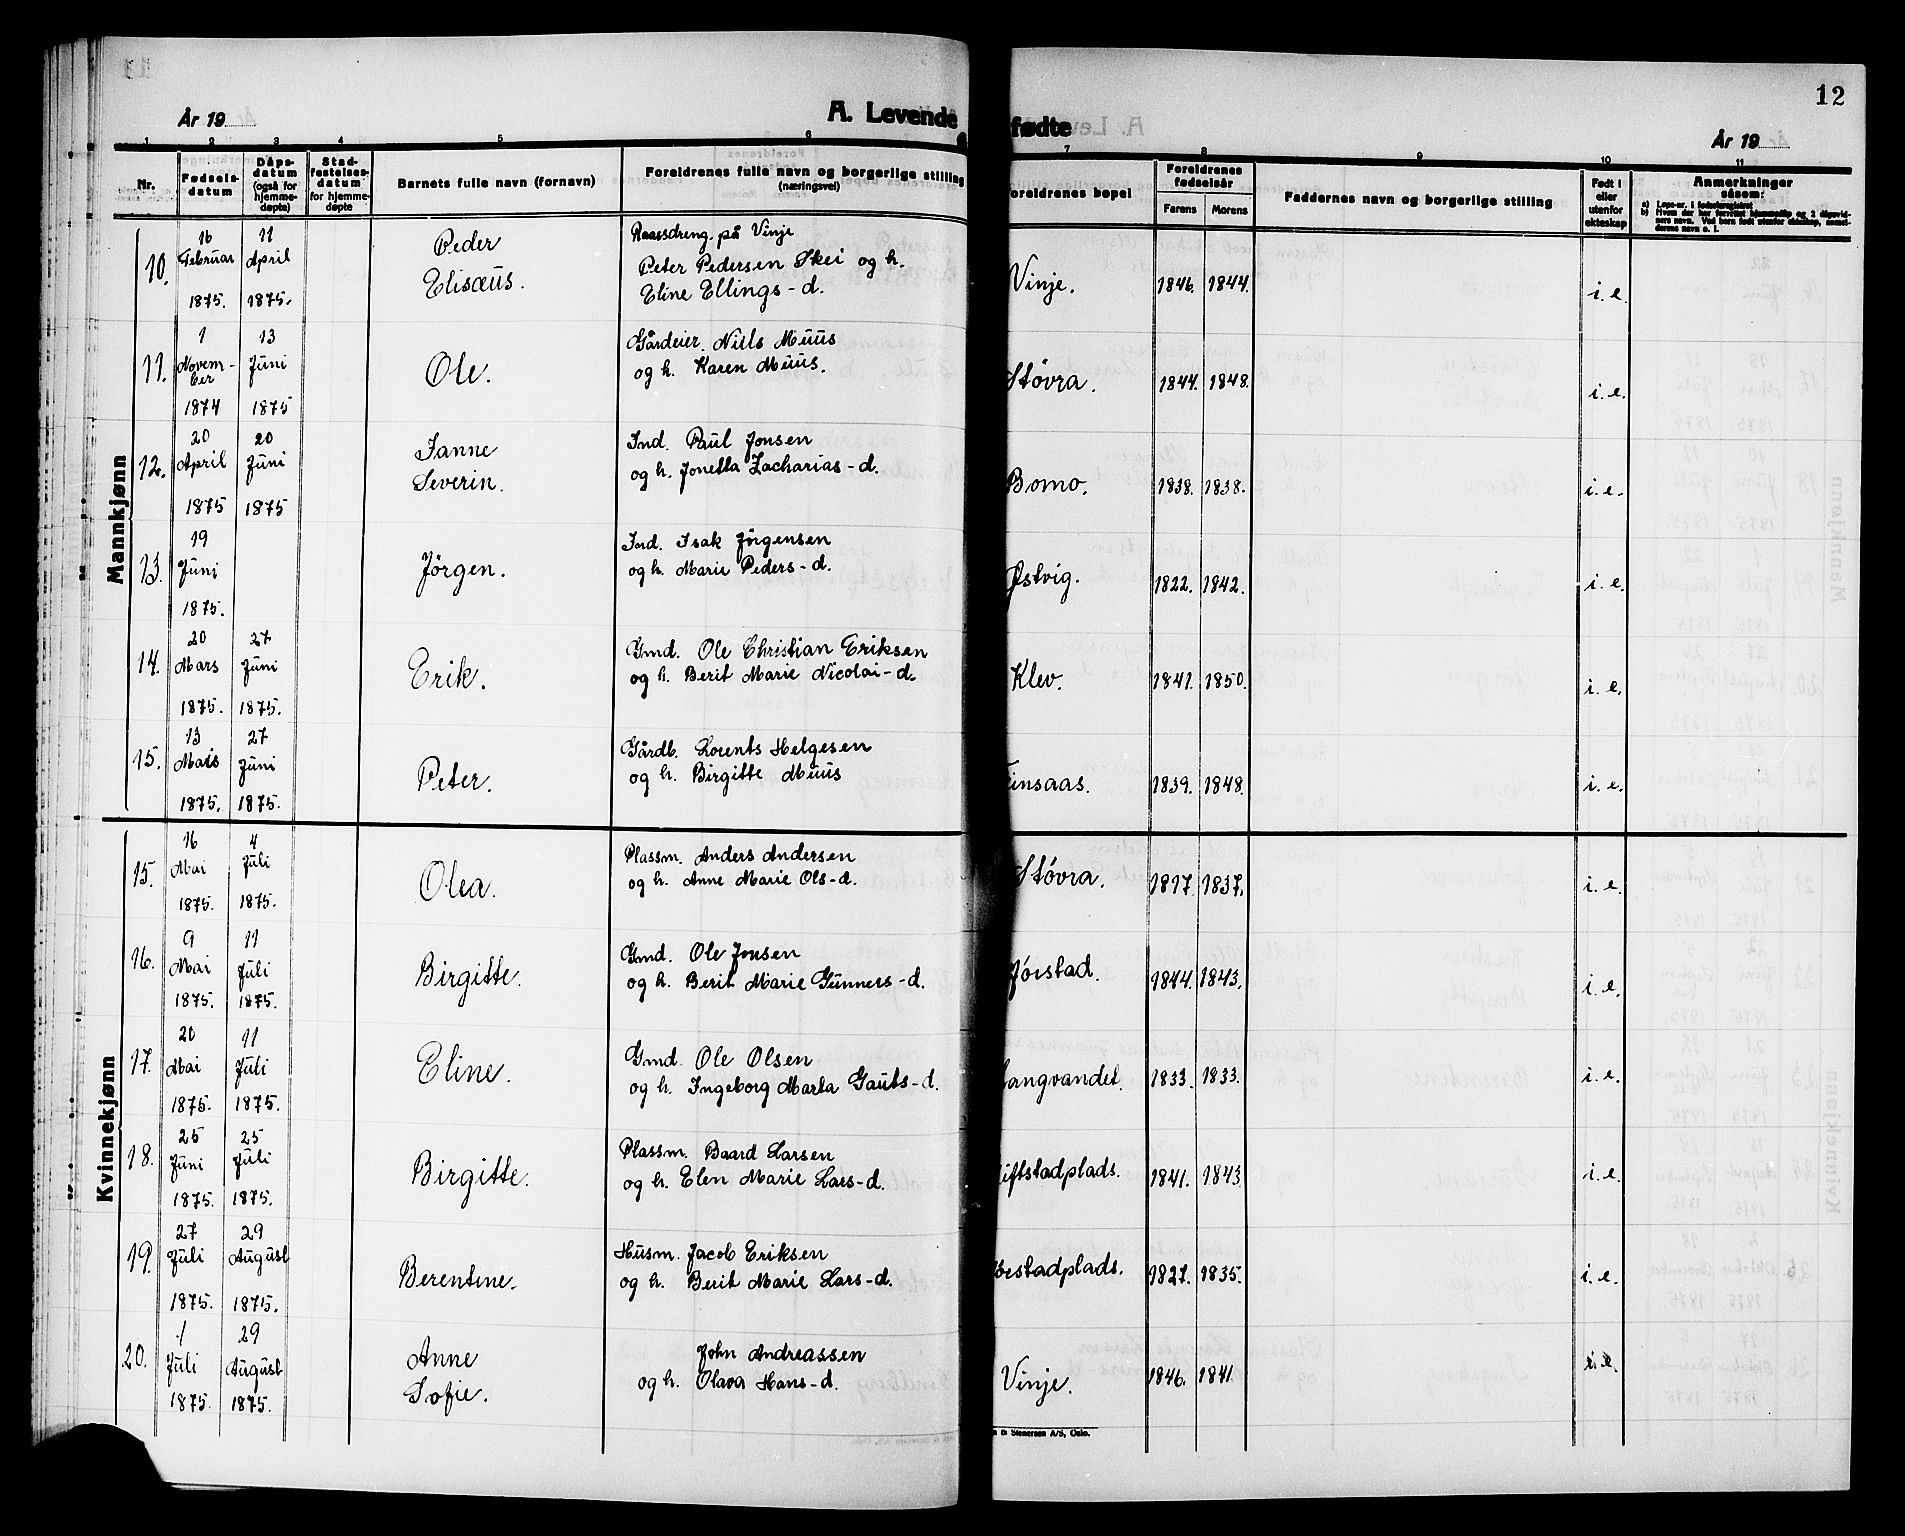 12
År 19
A. Levende
fødte
År 19
1 2 3 4 5 6 7 8 9 10 11
Nr.
Fødsels-
datum
Dåps-
datum
(også for
hjemme-
døpte)
Stad-
festelses-
datum
for hjemme-
døpte
Barnets fulle navn (fornavn)
Foreldrenes fulle navn og borgerlige stilling
(næringsvei)
Foreldrenes bopel
Foreldrenes
fødselsår
Farens Morens
Faddernes navn og borgerlige stilling
Født i
eller
utenfor
ekteskap
Anmerkninger
såsom:
a) Løpe-nr. i fødselsregistret
Mannkjønn
10. 16 Februar 1875. 11 April 1875.
Peder
Elisæus.
på Vinje
Peter Pedersen Skei og h.
Eline Ellings-d.
Vinje. 1846. 1844. i. e.
11. 1 Novem-
ber 1874 13 Juni 1875
Ole.
Gårdeier. Nills Muus
og h. Karen Muus.
Støvra. 1844. 1848. i. e.
12. 20 April 1875 20 Juni 1875
Janne
Severin.
Ind. Paul Jonsen
og h. Jonetta Zacharias-d.
Bomo. 1838. 1838. i. e.
13. 19 Juni 1875.
Jörgen.
Ind. Isak Jörgensen
og h. Marie Peders-d.
Østvig. 1822. 1842. i. e.
14. 20 Mars 1875. 27 Juni 1875.
Erik.
Gmd. Ole Christian Eriksen
og h. Berit Marie Nicolai-d.
Klev. 1841. 1850. i. e.
15. 13 Mais 1875. 27 Juni 1875.
Peter.
Gårdb. Lorents Helgesen
og h. Birgitte Muus
insaas. 1839. 1848. i. e.
Kvinnekjønn
15. 16 Mai 1875. 4 Juli 1875.
Olea.
Plassm. Anders Andersen
og h. Anne Marie Ols-d.
Støvra. 1837. i. e.
16. 9 Mai 1875. 11 Juli 1875.
Birgitte.
Gmd. Ole Jonsen
og h. Berit Marie Gunners-d.
Jørstad. 1844. 1843. i. e.
17. 20 Mai 1875. 11 Juli 1875.
Eline.
Gmd. Ole Olsen
og h. Ingeborg Marta Gauts-d.
Langvandet. 1833. 1833. i. e.
18. 25 Juni 1875. 25 Juli 1875.
Birgitte.
Plassm. Baard Larsen
og h. Elen Marie Lars-d.
iftstadplads. 1841. 1843 i. e.
19. 27 Juli 1875. 29 August 1875.
Berentine.
Husm. Jacob Eriksen
og h. Berit Marie Lars-d.
estadplads. 1827. 1835. i. e.
20. 1 Juli 1875. 29 August 1875.
Anne
Sofie.
John Andreassen
og h. Olava Hans-d.
Vinje. 1846. 1841. i. e.
n & Stenersen A/S, Oslo.